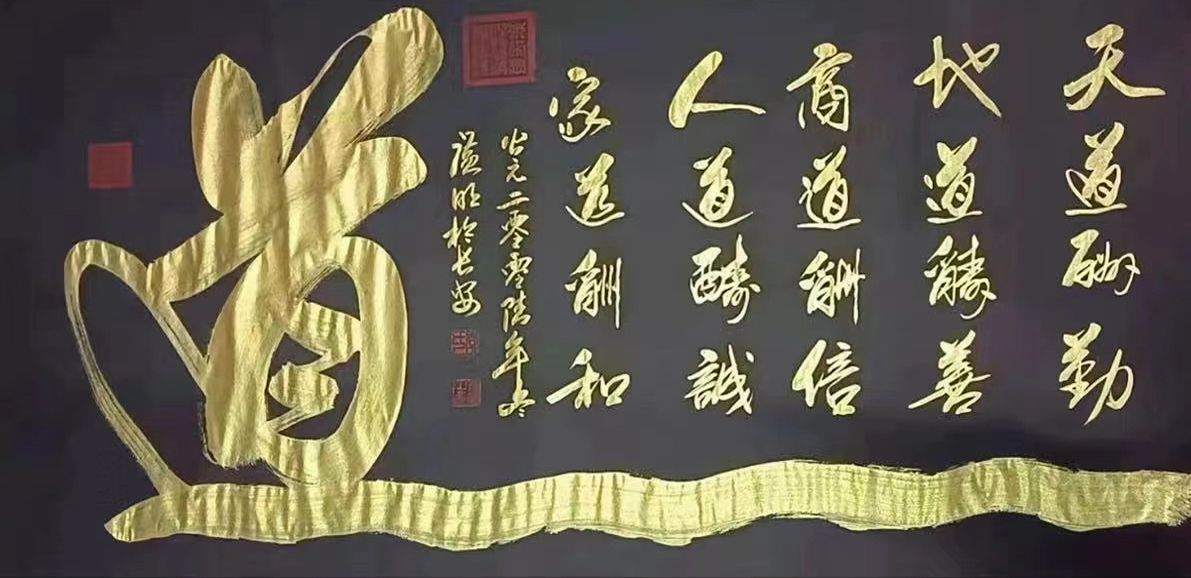 天道酬勤
地道醻善
商道酬信
人道醻誠
家道酬和
公元二零零陸年冬
於長安
道